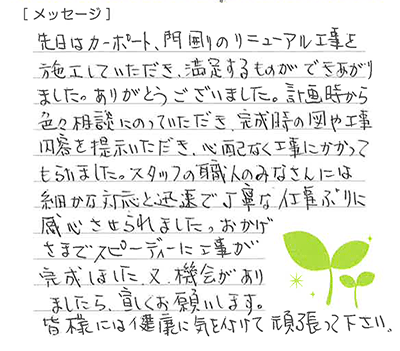 [メッセージ]
先日はカーポート、門囲りのリニューアル工事を
施工していただき、満足するものができあがり
ました。ありがとうございました。計画時から
色々相談にのっていただき、完成時の図や工事
内容を提示いただき、心配なく工事にかかって
もらいました。スタッフの職人のみなさんには
細かな対応と迅速で丁寧な仕事ぶりに
感心させられました。おかげ
さまでスピーディーに工事が
完成しました。又、機会があり
ましたら、宜しくお願いします。
皆様には健康に気を付けて頑張って下さい。